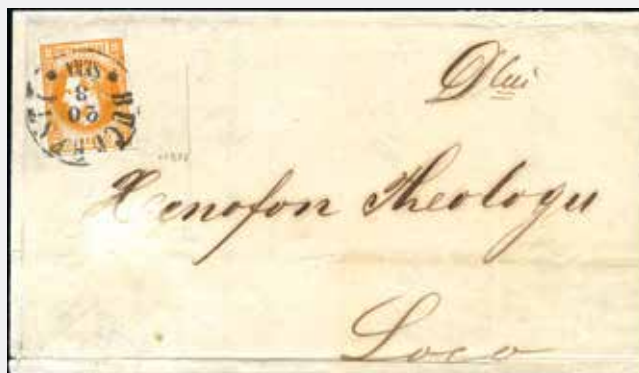 BUCURESCI
SERA
20
8
Dlui
Xenofon Theologu
Loco